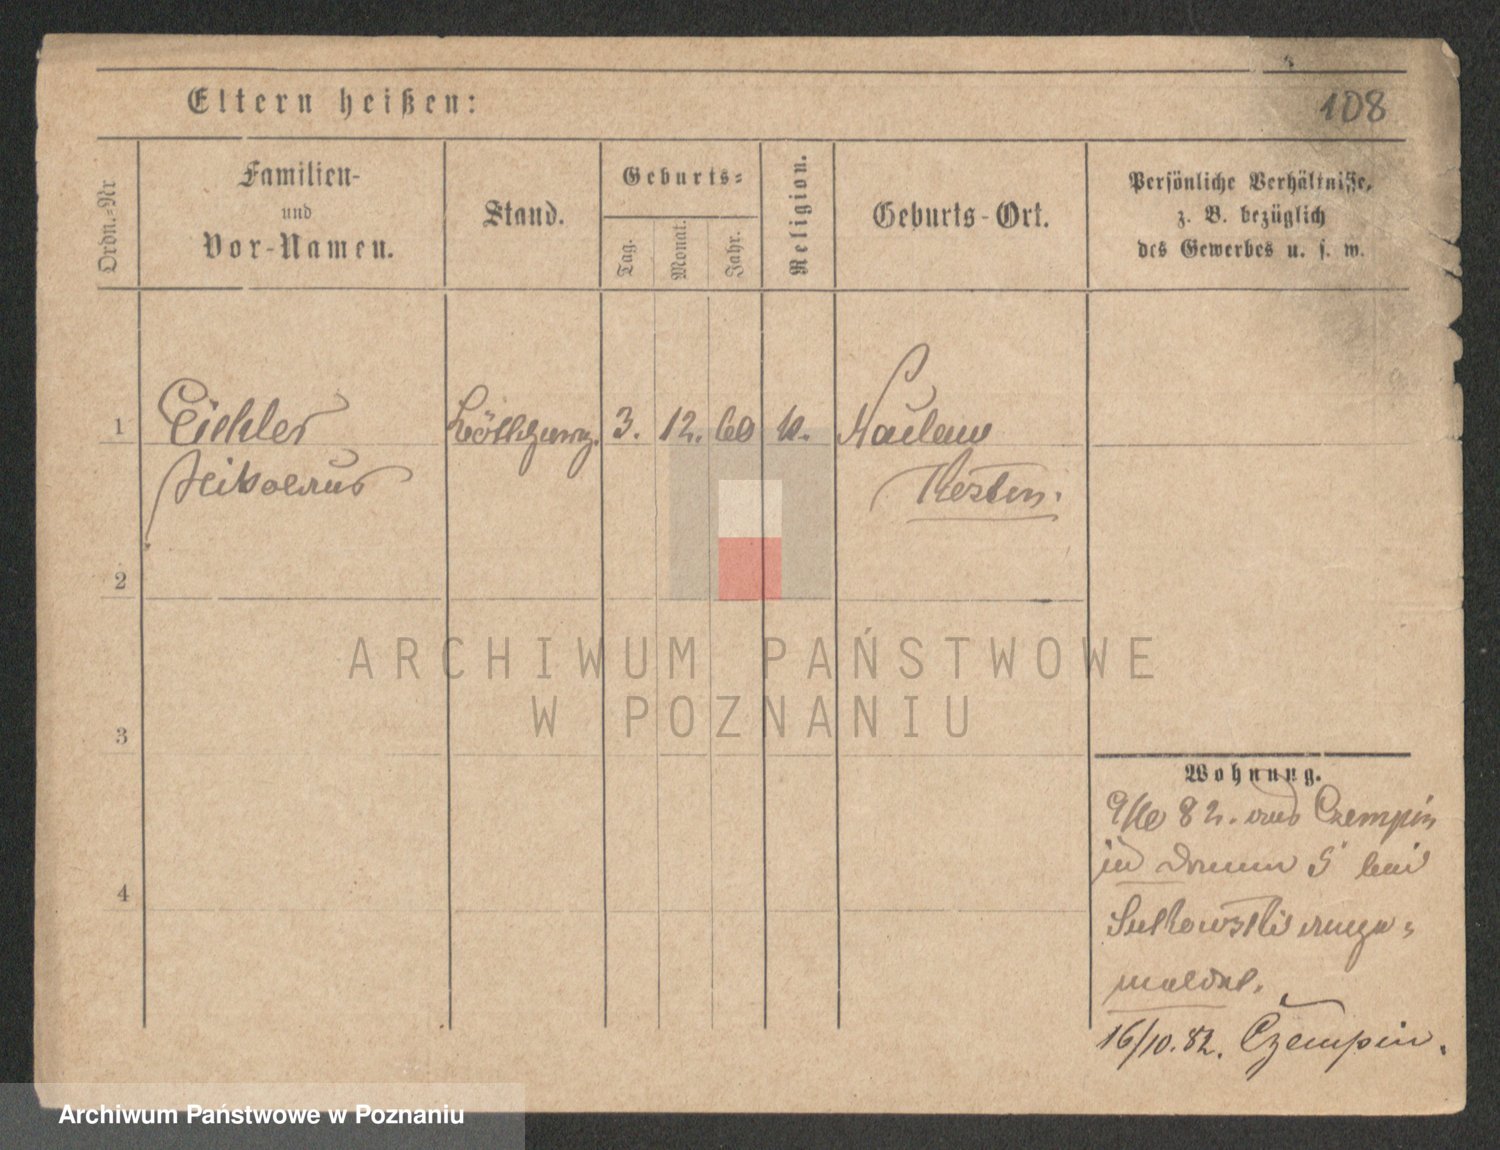 Eltern heißen:
108
Ordn.-Nr
Familien-
und
Vor-Namen.
Stand.
Geburts-
Tag.
Monat.
Jahr.
Religion.
Geburts-Ort.
Persönliche Verhältnisse,
z. B. bezüglich
des Gewerbes u. s. w.
1
Eichler 3. 12. 60 k.
Nikolaus Kosten.
2
3
4
Wohnung.
9/10 82. aus Czempin
in Damm 5 bei
Sutkowski ange-
meldet.
16/10. 82. Czempin.
ARCHIWUM PAŃSTWOWE
W POZNANIU
Archiwum Państwowe w Poznaniu